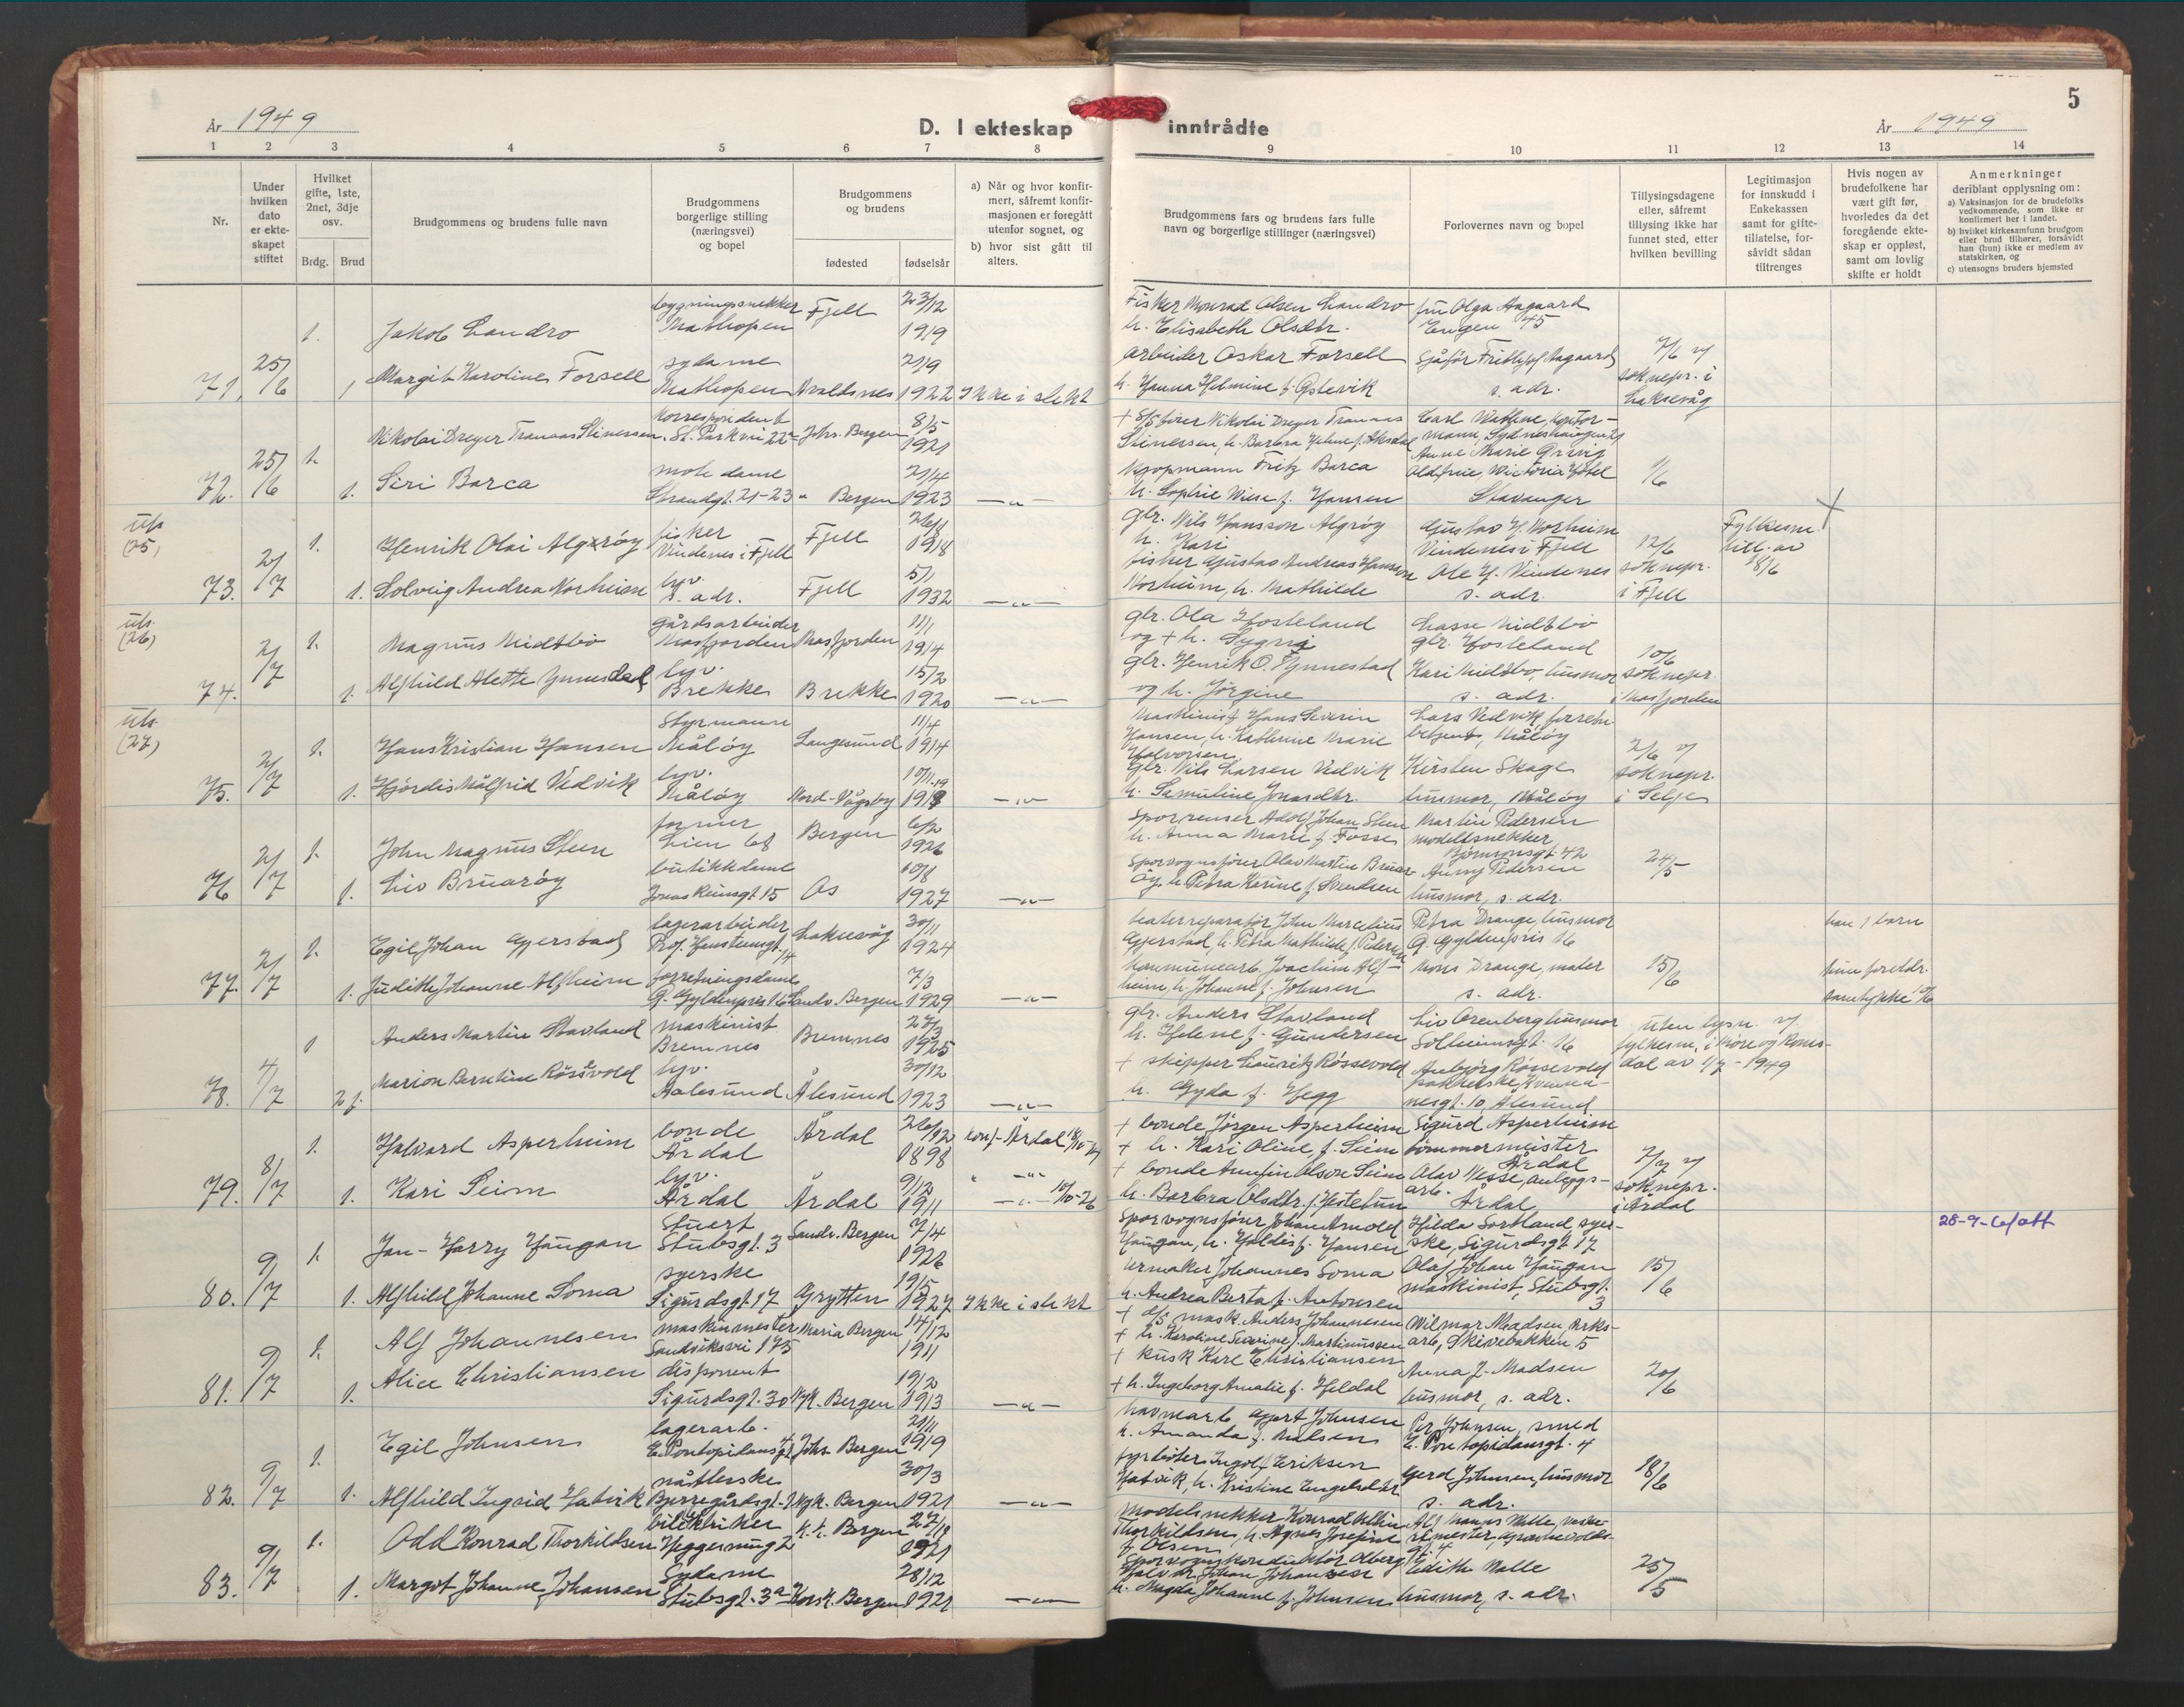 5
År 1949
D. I ekteskap inntrådte
År 1949
1 2 3 4 5 6 7 8 9 10 11 12 13 14
Nr.
Under hvilken dato er ekte-skapet stiftet
Hvilket gifte, 1ste, 2net, 3dje osv.
Brdg. Brud
Brudgommens og brudens fulle navn
Brudgommens borgerlige stilling (næringsvei) og bopel
Brudgommens og brudens
fødested fødselsår
a) Når og hvor konfir-mert, såfremt konfir-masjonen er foregått utenfor sognet, og
b) hvor sist gått til alters.
Brudgommens fars og brudens fars fulle navn og borgerlige stillinger (næringsvei)
Forlovernes navn og bopel
Tillysingsdagene eller, såfremt tillysing ikke har funnet sted, etter hvilken bevilling
Legitimasjon for innskudd i Enkekassen samt for gifte-tiliatelse, for-såvidt sådan tiltrenges
Hvis nogen av brudefolkene har vært gift før, hvorledes da det foregående ekte-skap er oppløst, samt om lovlig skifte er holdt
Anmerkninger
deriblant opplysning om:
a) Vaksinasjon for de brudefolks vedkommende, som ikke er konfirmert her i landet.
b) hvilket kirkesamfunn brudgom eller brud tilhører, forsåvidt han (hun) ikke er medlem av statskirken, og
c) utensogns bruders hjemsted
1. Jakob Landro bygningssnekker Mathopen Fjell 23/12 1919
Fisker Konrad Olsen Landro h. Elisabeth Olsdtr. fru Olga Aagaard Engen 45
71. 25/6 1 Margit Karoline Forsell sydame Mathopen 21/9 1922 Ikke i slekt
arbeider Oskar Forsell h. Hanna Helmine f. Sjåfør Frithjof Aagaard s. adr. 7/6 v/ soknepr. i Laksevåg
1. Nikolai Dreyer Tranaas Stinersen korrespondent Johs. Bergen 8/5 1921
Nikolai Dreyer Tranaas Stinersen, h. Barbra
72. 25/6 1. Siri Barca motedame Strandgt. 21-23 Bergen 21/4 1923 —"—
kjøpmann Fritz Barca h. Sophie Wiese f. Hansen Stavanger 1/6
uts. (25)
1. Henrik Olai Algrøy fisker Vindenes i Fjell Fjell 26/1 1918
gbr. Nils Hansson Algrøy h. Kari Gustav H. Norheim Vindenes i Fjell 12/6 soknepr. i Fjell Fylkesm. till. av 18/6
73. 2/7 1. Solveig Andrea Norheim hv. s. adr. Fjell 5/1 1932 —"—
fisker Gustav Andreas Hansson Norheim, h. Mathilde Ole H. Vindenes s. adr.
uts. (26)
1. Magnus Midtbø gårdsarbeider Masfjorden Masfjorden 11/1 1914
gbr. Ola Hosteland og + h. Sygni Lasse Midtbø gbr. Hosteland 10/6 soknepr. i Masfjorden
74. 2/7 1. Alfhild Alette Ynnesdal hv. Brekke Brekke 15/2 1920 —"—
gbr. Henrik O. Ynnestad og h. Jørgine Kari Midtbø, husmor s. adr.
uts. (27)
1. Hans Kristian Hansen styrmann Måløy Langesund 11/4 1914
Maskinist Hans Severin Hansen, h. Kathrine Marie Halvorsen Lars Vedvik, Måløy 2/6 v/ soknepr. i Selje
75. 2/7 1. Hjørdis Målfrid Vedvik hv. Måløy Nord-Vågsøy 10/11 19 —"—
gbr. Nils Larsen Vedvik h. Samuline Jonasdtr. Kirsten Skage husmor, Måløy
1. John Magnus Steen former Lien 68 Bergen 6/2 1926
sporrenser Adolf Johan Steen h. Anna Marie f. Fosse Martin Pedersen modellsnekker Bjørnsonsgt. 42 24/5
76. 2/7 1. Liv Bruarøy butikkdame Jonas Reinsgt. 15 Os 10/8 1927 —"—
sporvognsfører Olav Martin Bruarøy, h. Petra Karine f. Svendsen Anny Pedersen husmor, s. adr.
1. Egil Johan Gjerstad lagerarbeider Prof. Hansteensgt. 14 Laksevåg 30/11 1924
John Marcelius Gjerstad, h. Petra Mathilde f. Pedersen Petra Drange, husmor G. Gyldenpris 16 15/6 han 1 barn
77. 2/7 1. Judith Johanne Alfheim forretningsdame G. Gyldenpris 16 Sandv. Bergen 7/3 1929 —"—
kommunearb. Joachim Alfheim, h. Johanne f. Johnsen Mons Drange, maler s. adr. hun foreldr. samtykke
1 Anders Martin Stavland maskinist Bremnes Bremnes 27/3 1925
gbr. Anders Stavland h. Helene f. Gundersen Liv Orenberg husmor Solheimsgt. 16 uten lysn. v/ fylkesm. i Møre og Romsdal av 1/7 - 1949
78. 4/7 2 f. Marion Berntine Røssevold hv. Aalesund Ålesund 30/12 1923 —"—
+ skipper Lauritz Røssevold h. Gyda f. Hegg Anbjørg Røssevold 10, Ålesund
1. Halvard Asperheim bonde Årdal Årdal 26/12 1898 konf. Årdal
+ bonde Jørgen Asperheim + h. Kari Oline f. Seim Sigurd Asperheim tømmermeister Årdal 7/7 v/ soknepr. i Årdal
79. 8/7 1. Kari Seim hv. Årdal Årdal 9/12 1911 —"— 10/10-26
+ bonde Olson Seim h. Barbra Olsdtr. Olav Vesse, anleggsarb. Årdal
1. Jan-Harry Haugan Stuert Stubsgt. 3 Sandv. Bergen 7/4 1926
Sporvognsfører Johan Arnold Haugan, h. Haldis f. Hansen Hilda Sortland, syerske, Sigurdsgt. 17 15/6 28-9-61 att
80. 9/7 1. Alfhild Johanne Soma syerske Sigurdsgt. 17 Grytten 19/5 1927 Ikke i slekt
urmaker Johannes Soma h. Andrea Berta f. Antonsen Olaf Johan Haugan maskinist, Stubsgt. 3
1. Alf Johannesen maskinmester Sandviksvei 175 Maria Bergen 14/12 1911
+ d/s mask. Anders Johannesen + h. Karoline Severine f. Martinussen Wilmar Madsen, verks-arb., Skivebakken 5 20/6
81. 9/7 1. Alice Christiansen disponent Sigurdsgt. 30 Nyk. Bergen 19/2 1913 —"—
+ kusk Karl Christiansen + h. Ingeborg Amalie f. Heldal Anna J. Madsen husmor, s. adr.
1. Egil Johnsen lagerarb. E. Pontopidansgt. 4 Johs. Bergen 21/11 1919
havnearb. Gjert Johnsen h. Amanda f. Nilsen Per Johnsen, smed E. Pontopidansgt. 4 18/6
82. 9/7 1. Alfhild Ingrid Hatvik nåtlerske Bjerregårdsgt. Nyk. Bergen 30/3 1921 —"—
fyrbøter Ingolf Eriksen Hatvik, h. Kristine Engelsdtr. Gerd Johnsen, husmor s. adr.
1. Odd Konrad Thorkildsen bilelektriker K.k. Bergen 1921
Modelsnekker Konrad Thorkildsen, h. Agnes Josefine f. Olsen 25/5
83. 9/7 1. Margot Johanne Johansen Sydame Stubsgt. 3a Korsk. Bergen 28/12 1921 —"—
Sporvognskonduktør Johan Johansen h. Magda Johanne f. Johnsen Edith Valle husmor, s. adr.